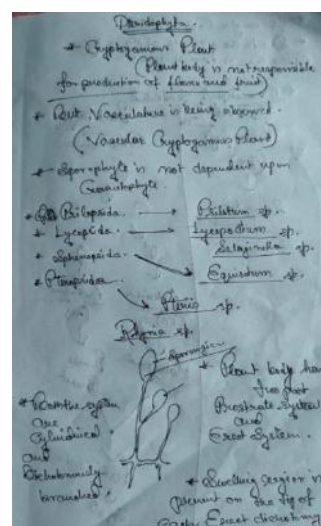 Pteridophyta.
* Cryptogamous Plant
(Plant body is not responsible
for production of flower and fruit)
* But Vasculature is being observed.
(Vascular Cryptogamous Plant)
* Sporophyte is not dependent upon
Gametophyte.
* Psilopsida. → Psilotum sp.
* Lycopsida → Lycopodium sp.
Selaginella sp.
* Sphenopsida → Equisetum sp.
* Pteropsida → Pteris sp.
Rhynia sp.
Sporangium
* Plant body has
two part
Prostrate system
and
Erect System.
* Both the system
are
Cylindrical
and
Dichotomously
branched
* Swelling region is
present on the tip of
Erect dichotomy